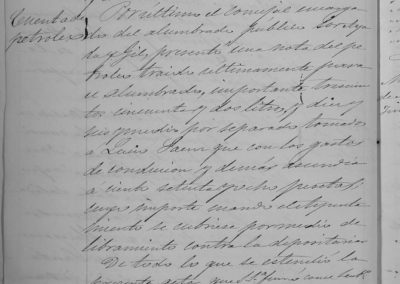 Cuenta de
petroleo
Por último el Concejal encarga
do del alumbrado público Sor.
y Gil, presentó una nota del pe
troleo traido ultimamente para
el alumbrado, importante trescien
tos cincuenta y dos litros, y diez y
seis y medio por separado, tomado
á Luis que con los gastos
de conduccion y demás asciende
á ciento setenta y ocho pesetas,
cuyo importe mandó el Ayunta
miento se cubriese por medio de
libramiento contra la depositaria
De todo lo que se estendió la
presente acta que